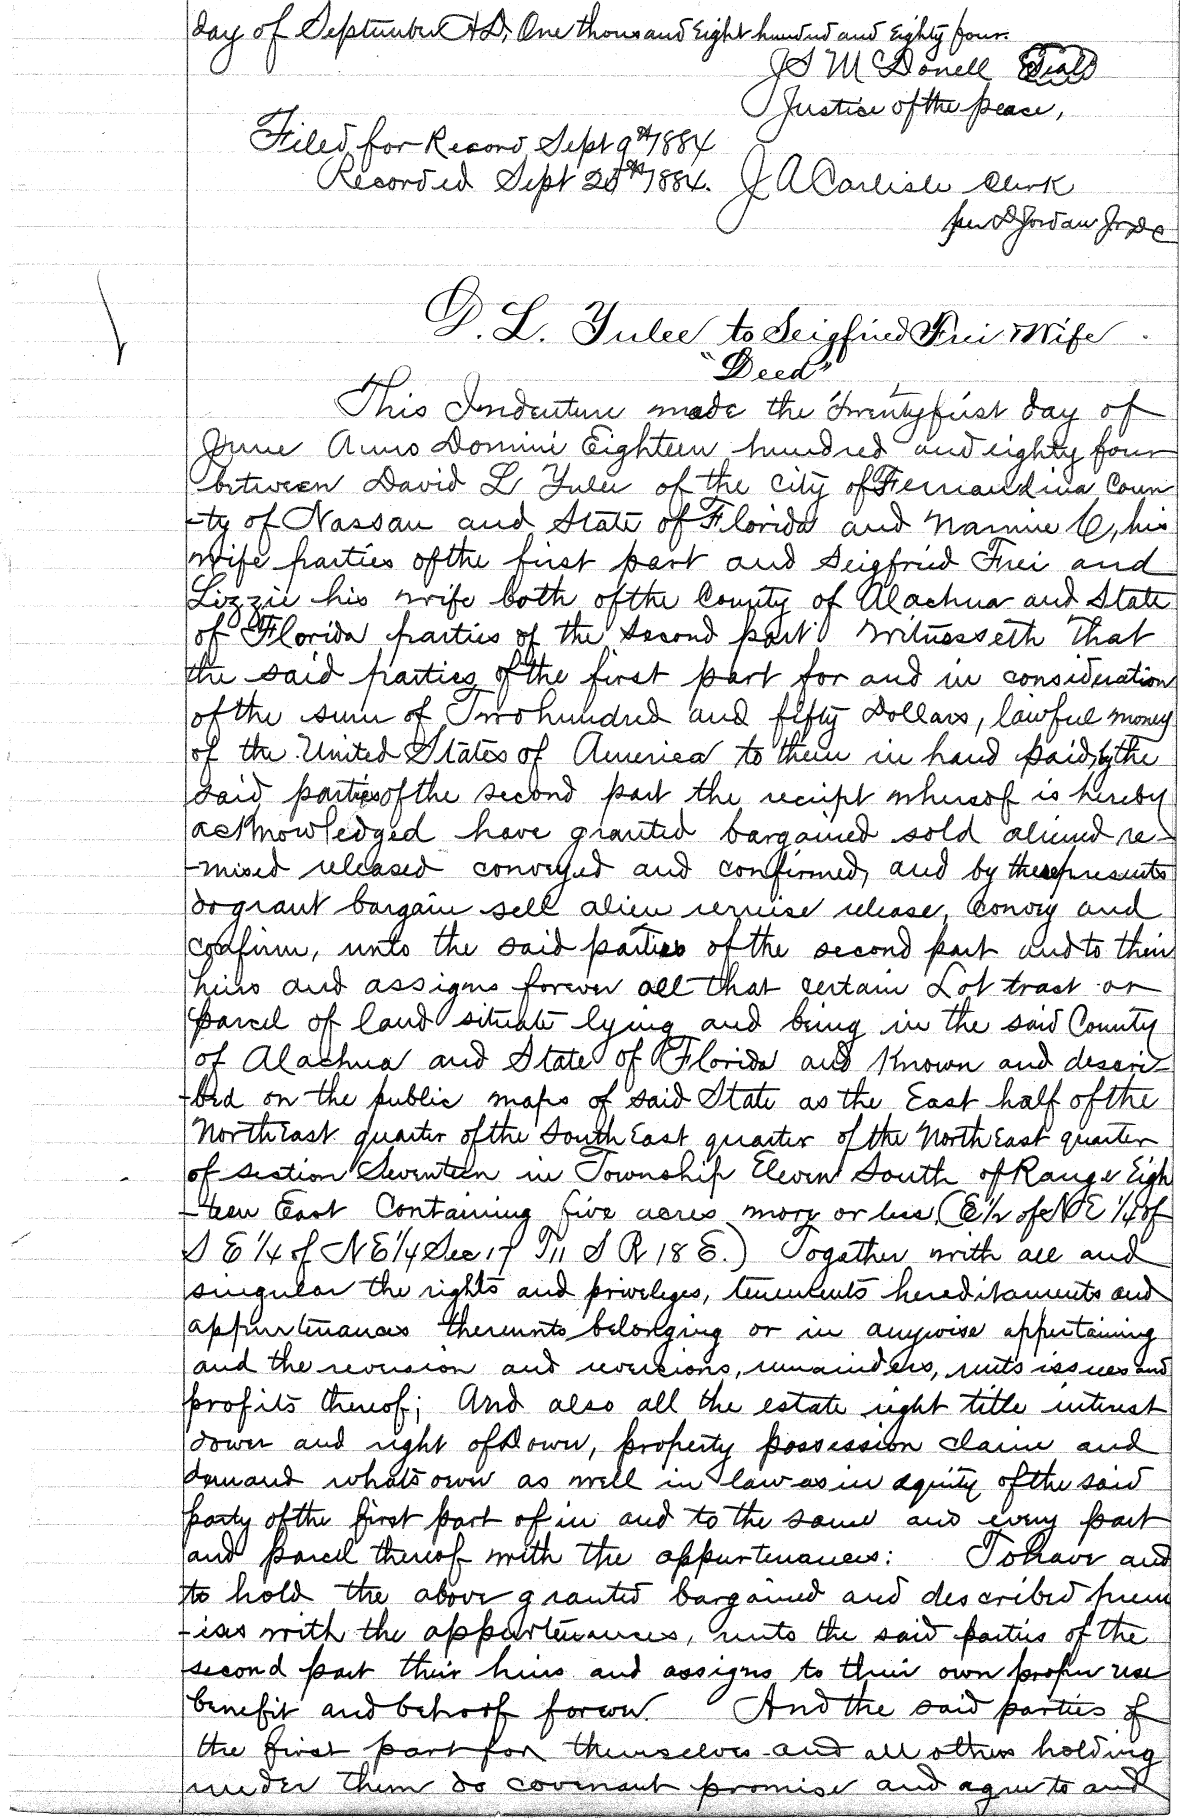 day of September A.D, One thousand Eight hundred and Eighty four.
J S McDonell Seal
Justice of the peace,
Filed for Record Sept 9th 1884
Recorded Sept 25th 1884. J A Carlisle Clerk
per D Jordan Jr D C
D. L. Yulee to Seigfried Frei & Wife
"Deed"
This Indenture made the Twentyfirst day of
June Anno Domini Eighteen hundred and eighty four
between David L Yulee of the city of Fernandina Coun
-ty of Nassau and State of Florida and Nannie C, his
wife parties of the first part and Seigfried Frei and
Lizzie his wife both of the County of Alachua and State
of Florida parties of the second part Witnesseth that
the said parties of the first part for and in consideration
of the sum of Two hundred and fifty Dollars, lawful money
of the United States of America to them in hand paid, by the
said parties of the second part the receipt whereof is hereby
acknowledged have granted bargained sold aliened re-
-mised released conveyed and confirmed, and by these presents
do grant bargain sell alien remise release, convey and
confirm, unto the said parties of the second part and to their
heirs and assigns forever all that certain Lot tract or
parcel of land situate lying and being in the said County
of Alachua and State of Florida and Known and descri-
-bed on the public maps of said State as the East half of the
North East quarter of the South East quarter of the North East quarter
of section Seventeen in Township Eleven South of Range Eigh
-teen East Containing five acres more or less (E 1/2 of N E 1/4 of
S E 1/4 of N E 1/4 Sec 17 T 11 S R 18 E.) Together with all and
singular the rights and privileges, tenements hereditaments and
appurtenances thereunto belonging or in anywise appertaining
and the reversion and reversions, remainders, rents issues and
profits thereof; And also all the estate right title interest
dower and right of Dower, property possession claim and
demand whatsoever as well in law as in equity of the said
party of the first part of in and to the same and every part
and parcel thereof with the appurtenances: To have and
to hold the above granted bargained and described prem
-ises with the appurtenances, unto the said parties of the
second part their heirs and assigns to their own proper use
benefit and behoof forever. And the said parties of
the first part for themselves and all others holding
under them do covenant promise and agree to and